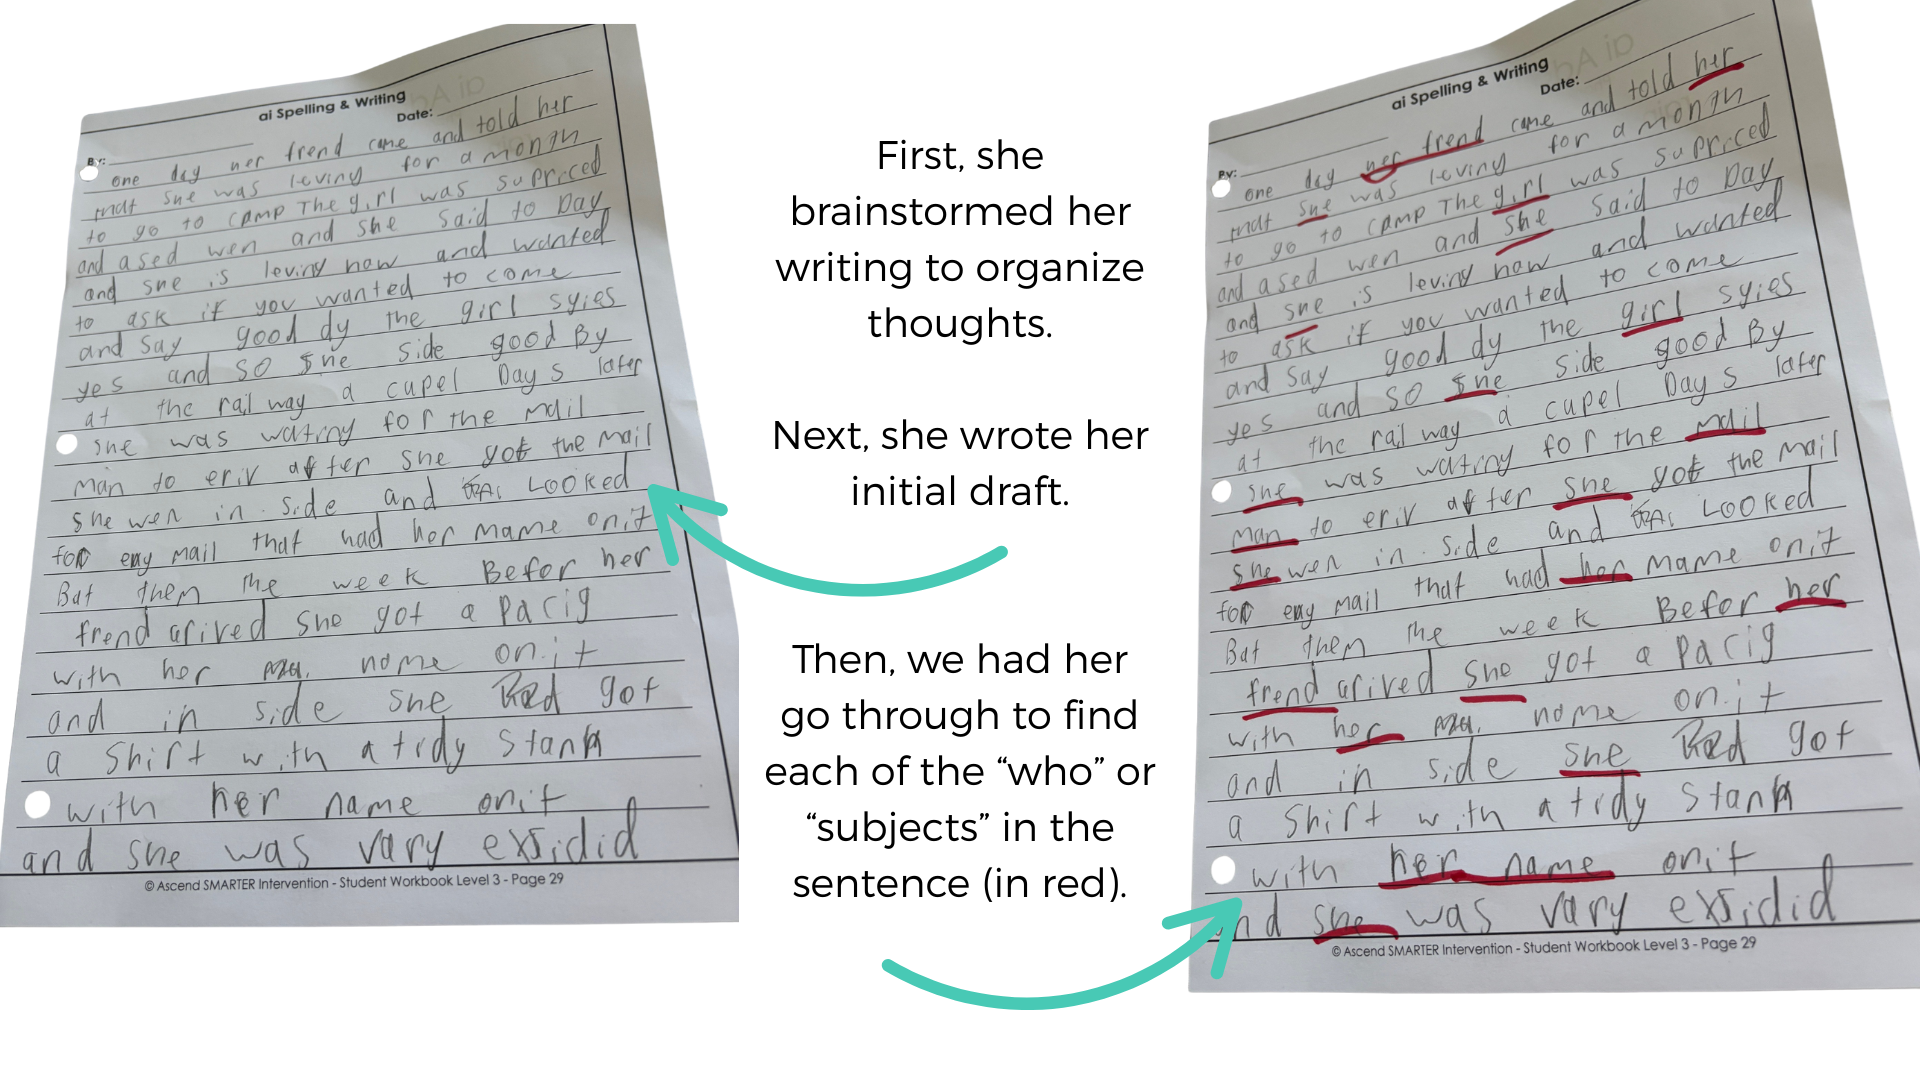 ai Spelling & Writing
Date:
By:
one day her frend came and told her
that she was leving for a month
to go to camp The girl was supriced
and ased wen and she said to Day
and she is leving now and wanted
to ask if you wanted to come
and say good dy the girl syies
yes and so she side good By
at the rail way a cupel Days later
she was watiny for the mail
man to eriv after she got the mail
she wen in side and Looked
for eny mail that had her mame onit
But them the week Befor her
frend arived she got a pacig
with her nome on it
and in side she got
a Shirt with a trdy stann
with her name onit
and she was vary exsidid
© Ascend SMARTER Intervention - Student Workbook Level 3 - Page 29
First, she
brainstormed her
writing to organize
thoughts.
Next, she wrote her
initial draft.
Then, we had her
go through to find
each of the “who” or
“subjects” in the
sentence (in red).
ai Spelling & Writing
Date:
By:
one day her frend came and told her
that she was leving for a month
to go to camp The girl was supriced
and ased wen and she said to Day
and she is leving now and wanted
to ask if you wanted to come
and say good dy the girl syies
yes and so she side good By
at the rail way a cupel Days later
she was watiny for the mail
man to eriv after she got the mail
she wen in side and Looked
for eny mail that had her mame onit
But them the week Befor her
frend arived she got a pacig
with her nome on it
and in side she got
a Shirt with a trdy stann
with her name onit
and she was vary exsidid
© Ascend SMARTER Intervention - Student Workbook Level 3 - Page 29